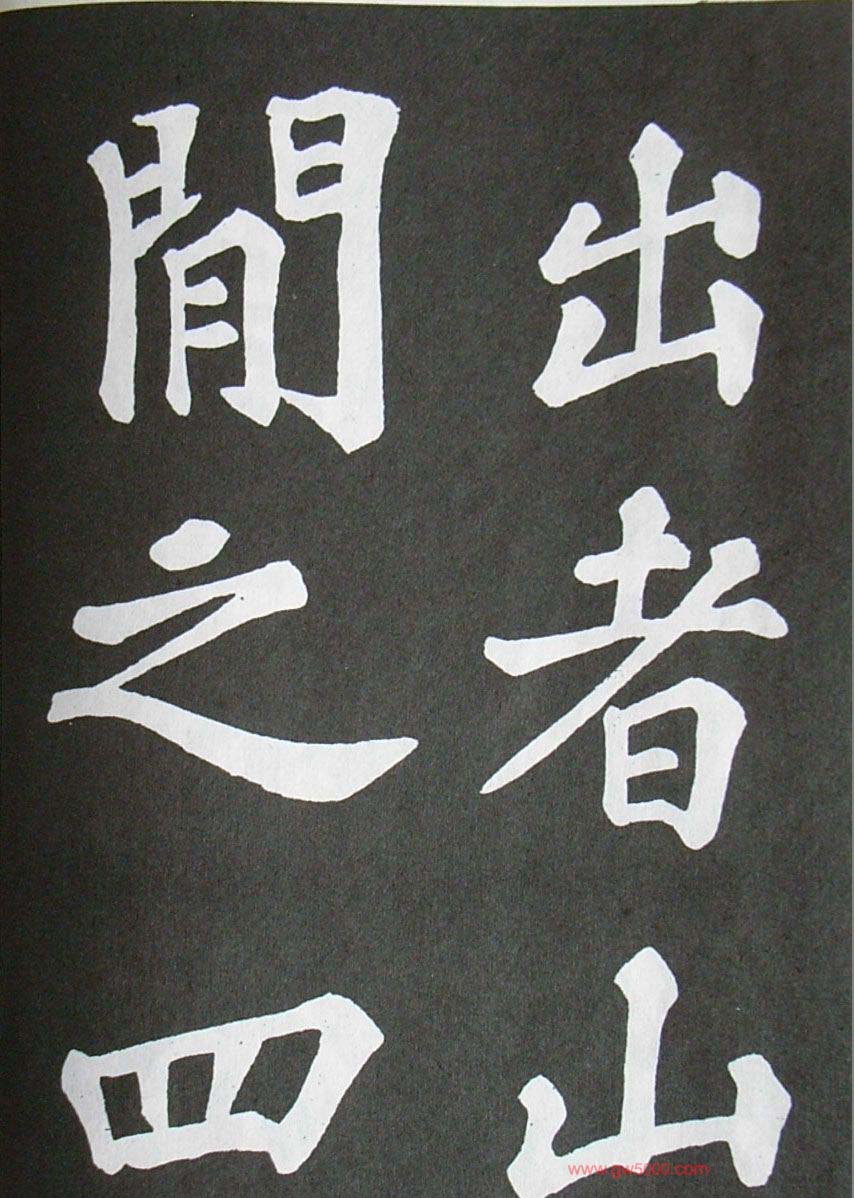 出者山
閒之四
www.gw5000.com